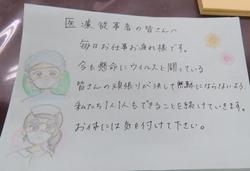 医療従事者の皆さんへ
毎日お仕事お疲れ様です。
今も懸命にウイルスと闘っている
皆さんの頑張りが決して無駄にならないよう、
私たち1人1人もできることを続けていきます。
お体には気を付けて下さい。